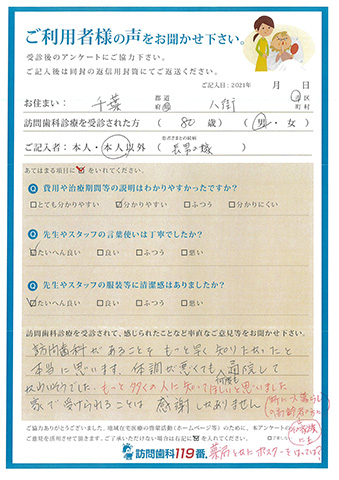 ご利用者様の声をお聞かせ下さい。
受診後のアンケートにご協力下さい。
ご記入後は同封の返信用封筒にてご返送ください。
ご記入日：2021年 月 日
お住まい： 千葉 都道府県 八街 市区町村
訪問歯科診療を受診された方 （ 80 歳）（ 男・女 ）
ご記入者：本人・本人以外（ 患者さまとの続柄 長男の嫁 ）
あてはまる項目に☑をいれてください。
Q 費用や治療期間等の説明はわかりやすかったですか？
□とても分かりやすい ☑分かりやすい □ふつう □分かりにくい
Q 先生やスタッフの言葉使いは丁寧でしたか？
☑たいへん良い □良い □ふつう □悪い
Q 先生やスタッフの服装等に清潔感はありましたか？
☑たいへん良い □良い □ふつう □悪い
訪問歯科診療を受診されて、感じられたことなど率直なご意見等をお聞かせ下さい。
訪問歯科があることを もっと早く知りたかったと
本当に思います。体調が悪くても 通院して
もっと多くの人に知ってほしいと思いました
家で受けられることは 感謝しかありません
ご協力ありがとうございました。地域在宅医療の啓蒙活動（ホームページ等）のために、本アンケートの
ご意見を活用させて頂きます。ご了承いただけない場合は右記に☑を入れてください。 □
訪問歯科119番。
薬局とかにポスターをはってほしい